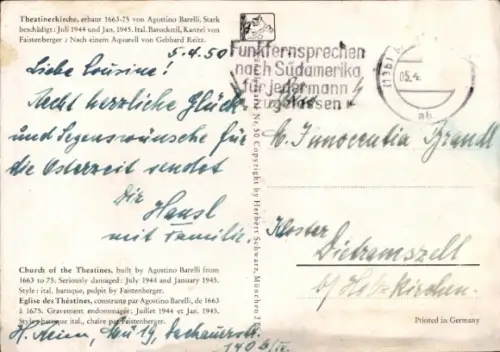 Theatinerkirche, erbaut 1663-75 von Agostino Barelli. Stark
beschädigt: Juli 1944 und Jan. 1945. Ital. Barockstil, Kanzel von
Faistenberger / Nach einem Aquarell von Gebhard Reitz.
5.4.50
Liebe Cousine!
Recht herzliche Glück-
und Segenswünsche für
die Osterzeit sendet
Dir
Hansl
mit Familie.
Church of the Theatines, built by Agostino Barelli from
1663 to 75. Seriously damaged: July 1944 and January 1945.
Style: ital. baroque, pulpit by Faistenberger.
Eglise des Théatines, construite par Agostino Barelli, de 1663
à 1675. Gravement endommagée: Juillet 1944 et Jan. 1945.
Style: baroque ital., chaire par Faistenberger.
Nr. 50 Copyright by Herbert Schwarz, München
Funkfernsprechen
nach Südamerika
für jedermann
zugelassen
05.4.
M. Innocentia Brandl
Kloster
Dietramszell
b/ Holzkirchen.
Printed in Germany